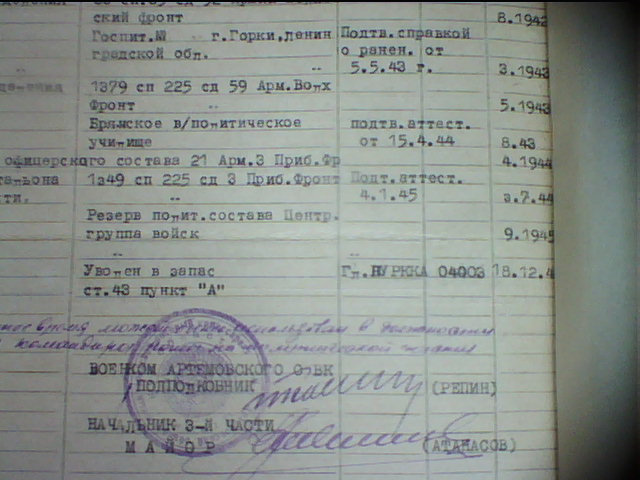 ский фронт 8.1942
Госпит.№ г.Горки,ленин Подтв.справкой
градской обл. о ранен. от
-"- -"- 5.5.43 г. 3.1943
1379 сп 225 сд 59 Арм.Волх
Фронт -"- 5.1943
Брянское в/политическое подтв.аттест.
училище от 15.4.44 8.43
офицерского состава 21 Арм.3 Приб.Фр 4.1944
1349 сп 225 сд 3 Приб.Фронт Подт.аттест.
сти. -"- 4.1.45
Резерв полит.состава Центр.
группа войск 9.1945
-"-
Уволен в запас Гл.ПУРККА 04003 18.12.4
ст.43 пункт "А"
время может быть использован в
командира
ВОЕНКОМ АРТЕМОВСКОГО ОВК
ПОЛПОЛКОВНИК (РЕПИН)
НАЧАЛЬНИК 3-й ЧАСТИ
МАЙОР (АТАНАСОВ)